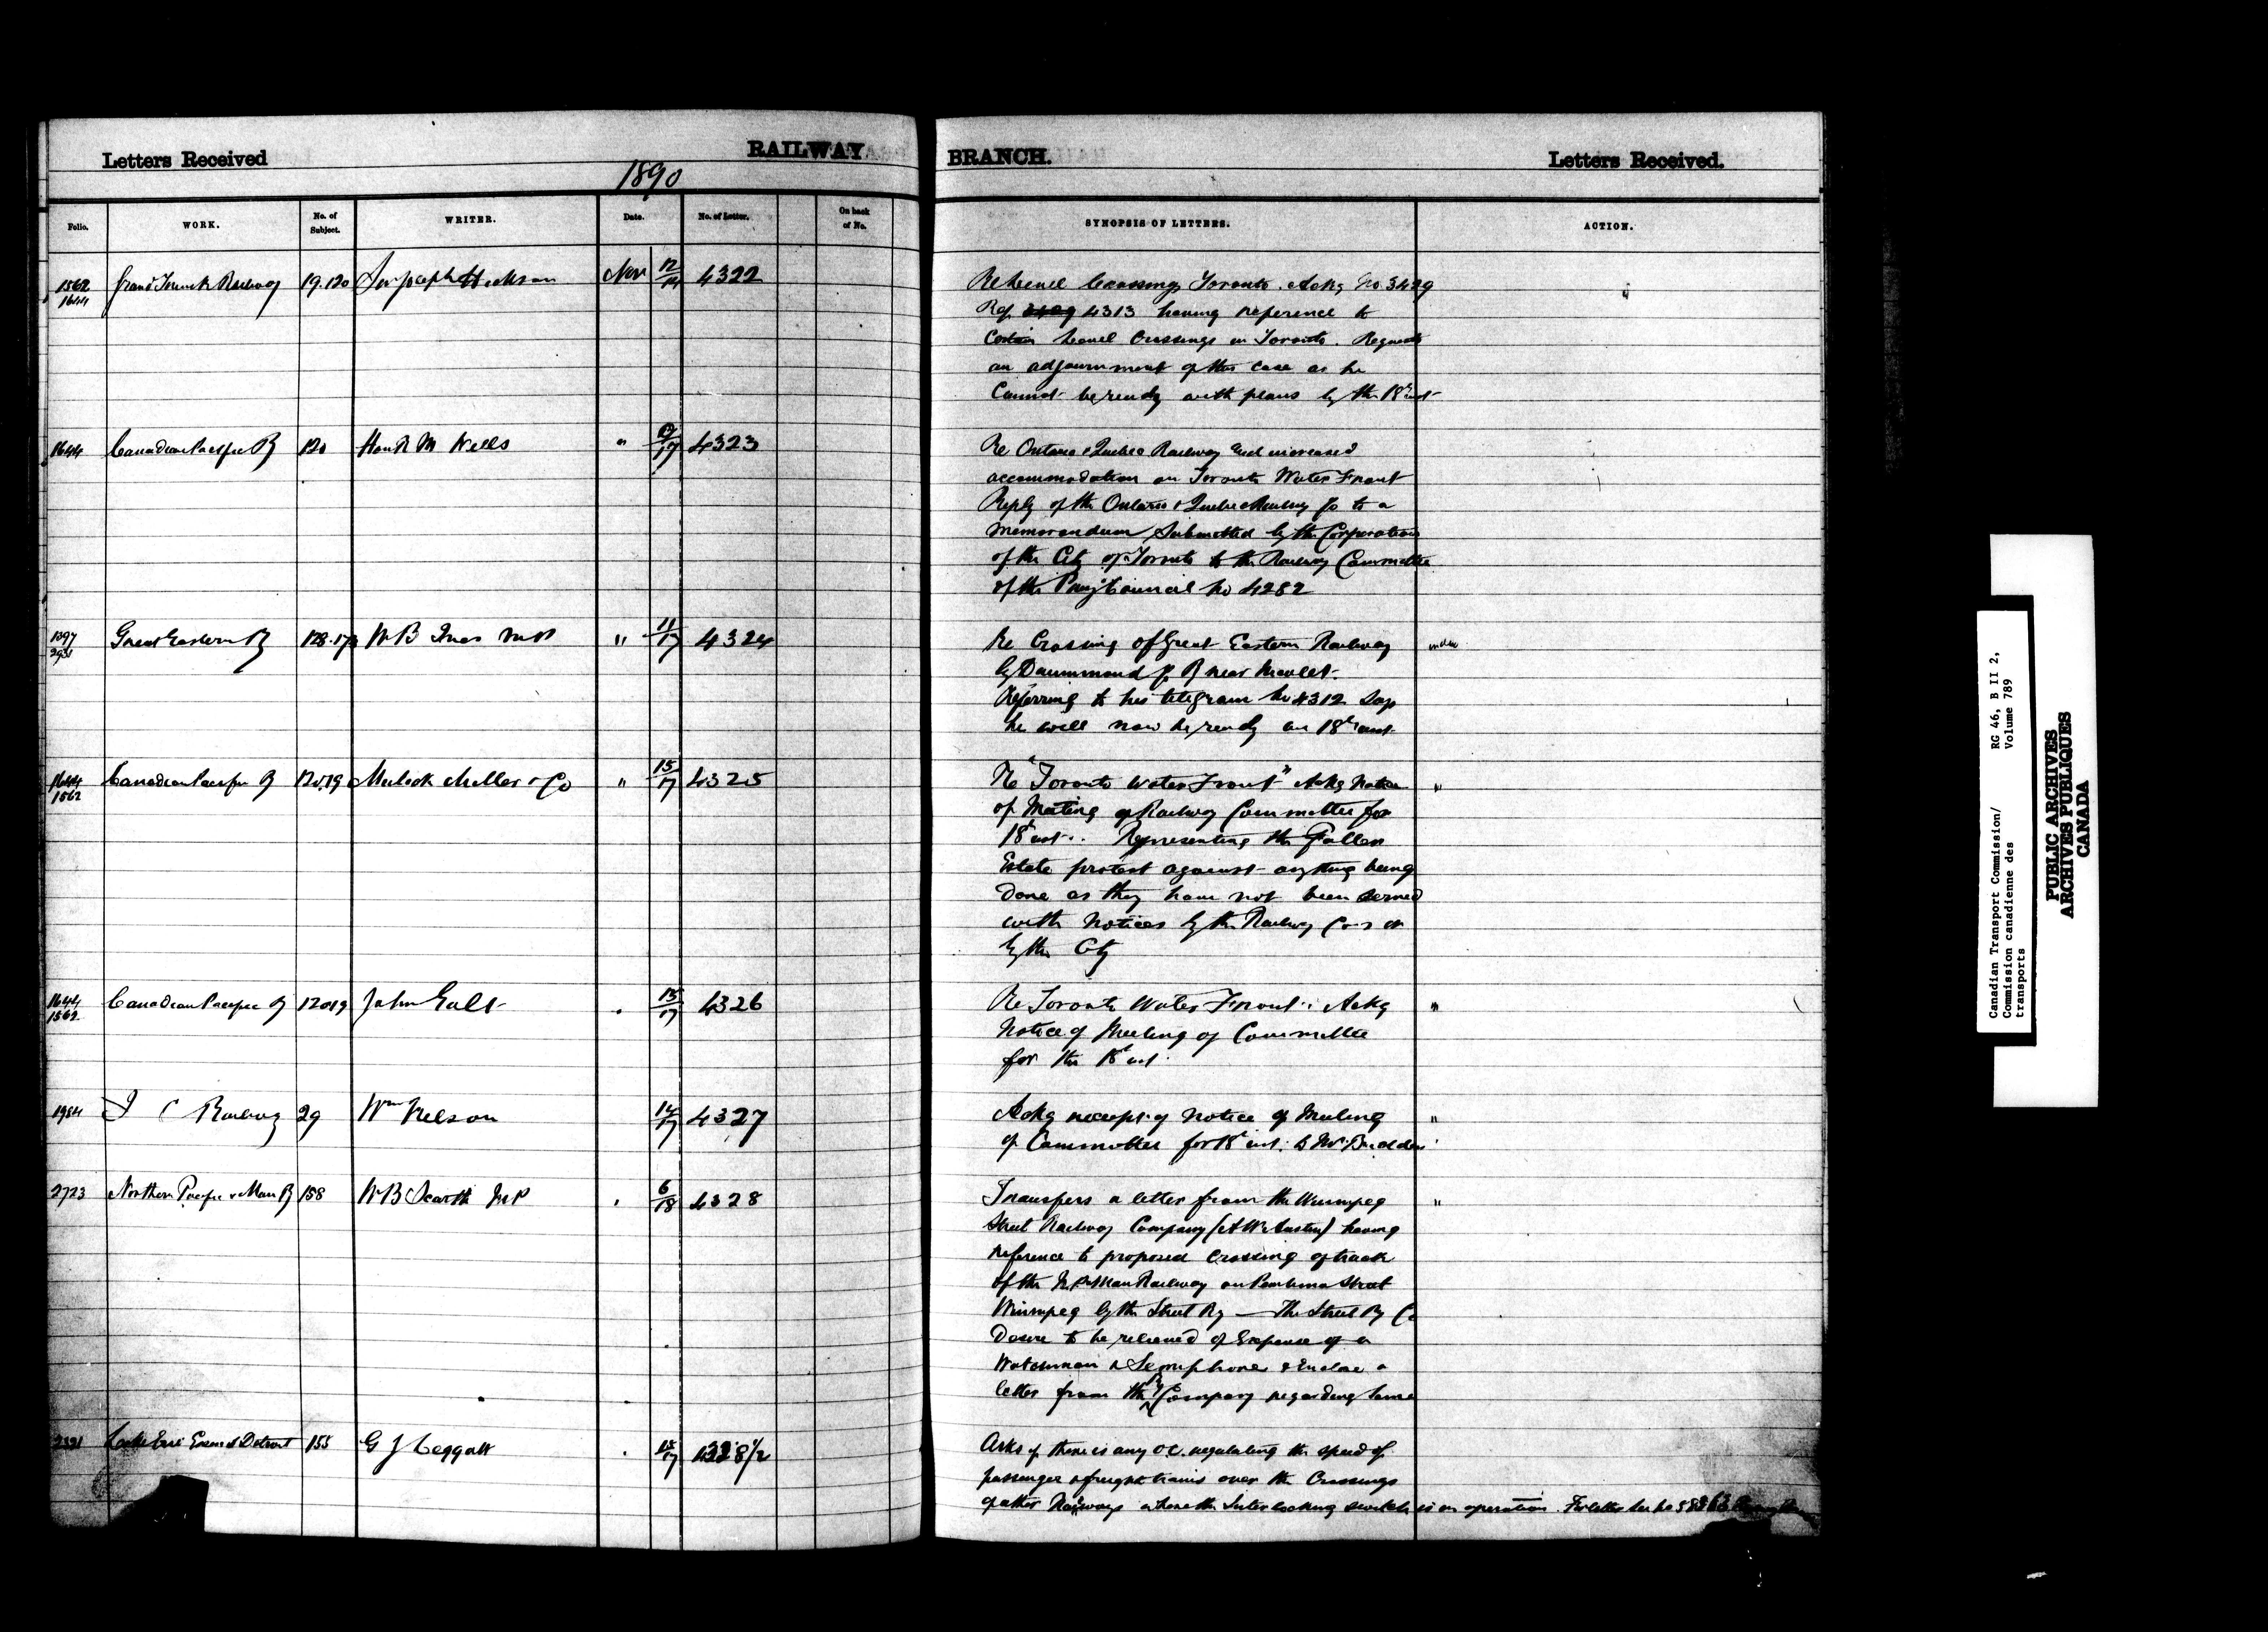 Letters Received
RAILWAY
BRANCH.
Letters Received.
1890
Folio.
WORK.
No. of Subject.
WRITER.
Date.
No. of Letter.
On back of No.
SYNOPSIS OF LETTERS.
ACTION.
1562 1644 Grand Trunk Railway 19.120 Sir Joseph Hickson Nov 12/14 4322
Re Level Crossings Toronto. Ackg No 3429
Ref 4313 having reference to
Certain Level Crossings in Toronto. Requests
an adjournment of the case as he
Cannot be ready with plans by the 18th inst
1644 Canadian Pacific Ry 120 Hon R M Wells " 17 4323
Re Ontario & Quebec Railway and increased
accommodation on Toronto Water Front
Reply of the Ontario & Quebec Railway Co to a
Memorandum Submitted by the Corporation
of the City of Toronto to the Railway Committee
of the Privy Council No 4282
Great Eastern Ry W B Ives M P " 11/17 4324
Re Crossing of Great Eastern Railway
by Drummond Co Ry near Nicolet.
Referring to his telegram No 4312 Says
he will now be ready on 18th inst
1644 1562 Canadian Pacific Ry 120.19 Mulock Miller & Co " 15/17 4325
Re "Toronto Water Front" Ackg Notice "
of Meeting of Railway Committee for
18th inst. Representing the Gallen
Estate protest against anything being
done as they have not been served
with Notices by the Railway Co's or
by the City
1644 1562 Canadian Pacific Ry 120.19 John Galt 15/17 4326
Re Toronto Water Front. Ackg "
Notice of Meeting of Committee
for the 18th inst.
1984 I C Railway 29 Wm Nelson 14/17 4327
Ackg receipt of Notice of Meeting "
of Committee for 18th inst. to
2723 Northern Pacific & Man Ry 158 W B Scarth M P 6/18 4328
Transfers a letter from the Winnipeg "
Street Railway Company (A W Austin) having
reference to proposed Crossing of track
of the N P & Man Railway on Pembina Street
Winnipeg by the Street Ry — The Street Ry Co
Desire to be relieved of Expense of a
Watchman & Semaphore & Enclose a
letter from the Ry Company regarding same
Lake Erie Essex & Detroit 155 G J Leggatt 15/17 4328 1/2
Asks if there is any O.C. regulating the speed of
passenger & freight trains over the Crossings
of other Railways where the Interlocking switch is in operation. For letter see No
Canadian Transport Commission/
Commission canadienne des
transports
RG 46, B II 2,
Volume 789
PUBLIC ARCHIVES
ARCHIVES PUBLIQUES
CANADA